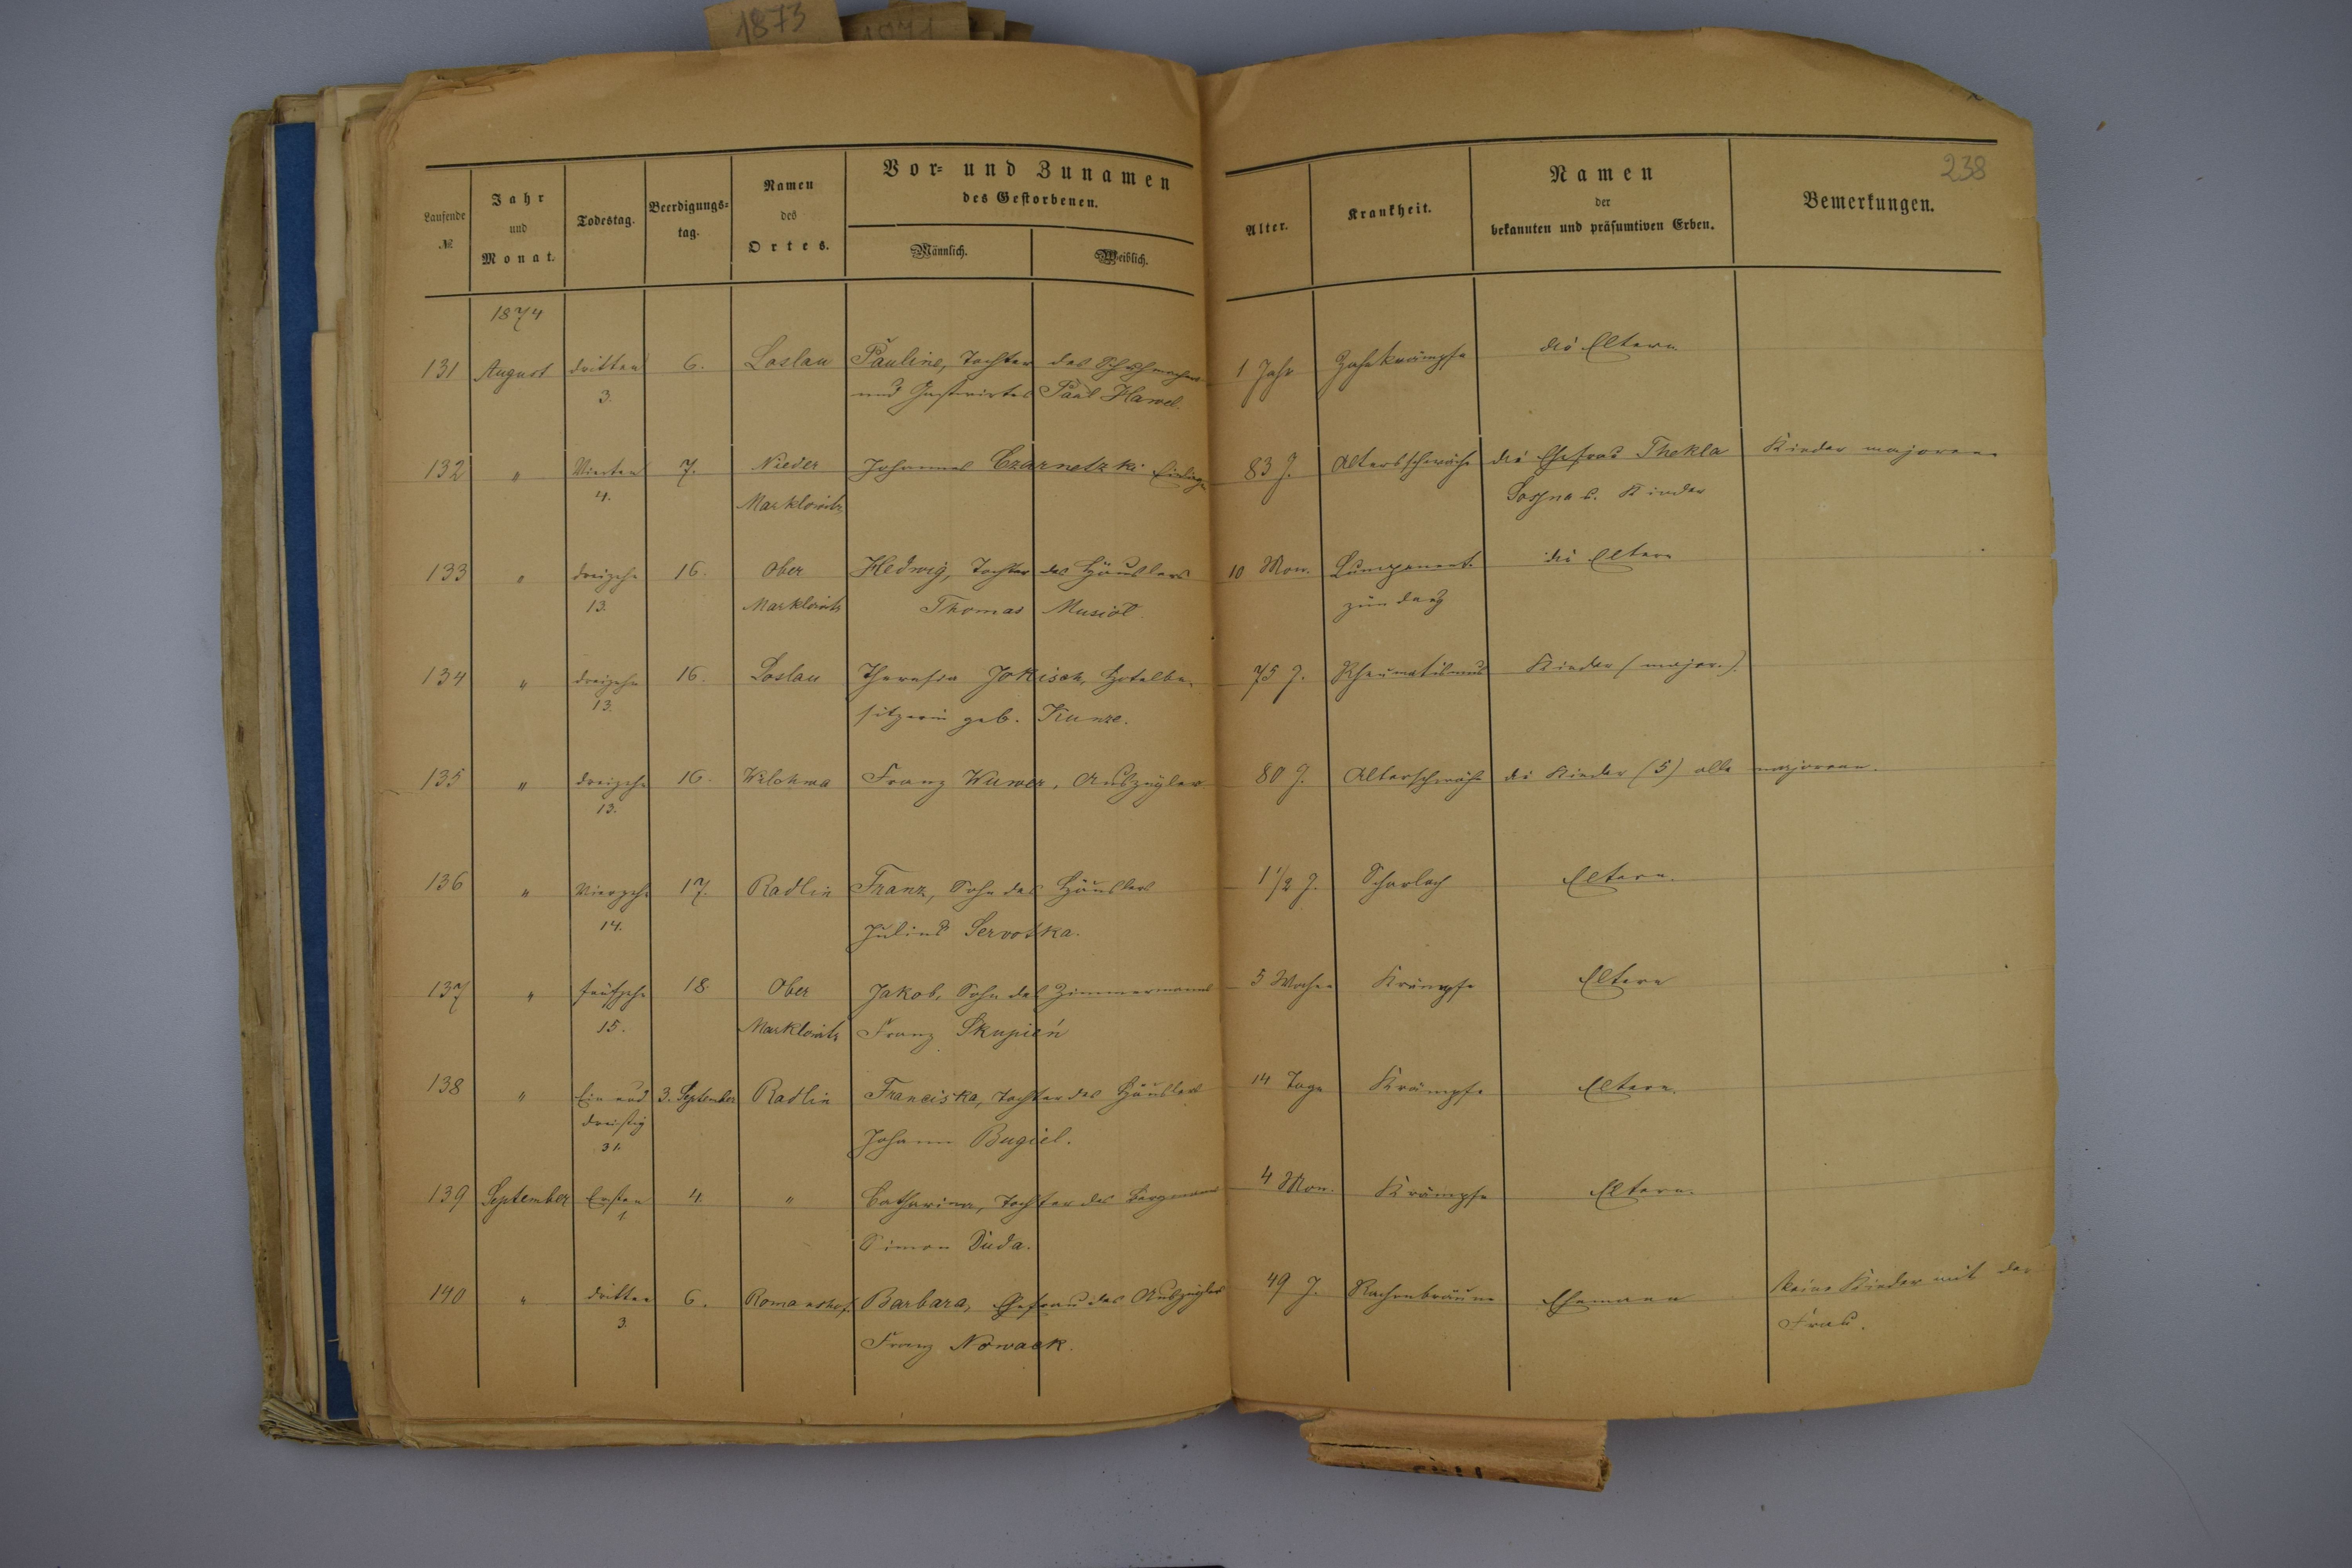 1873
1871
238
Laufende № | Jahr und Monat. | Todestag. | Beerdigungs=tag. | Namen des Ortes. | Vor= und Zunamen des Gestorbenen. | Alter. | Krankheit. | Namen der bekannten und präsumtiven Erben. | Bemerkungen.
Männlich. | Weiblich.
1874
131 August dritten 6. Loslau Pauline, Tochter des Schuhmachers 1 Jahr Zahnkrämpfe die Eltern
3. und Gastwirtes Paul Hawel.
132 " Vierten 7. Nieder Johannes Czarnetzki Einlieger 83 J. Altersschwäche die Ehefrau Thekla Kinder majorenn
4. Marklowitz Sosna u. Kinder
133 " dreizehn 16. Ober Hedwig, Tochter des Häuslers 10 Mon. Lungenent- die Eltern
13. Marklowitz Thomas Musiol zündung
134 " dreizehn 16. Loslau Theresia Jokisch, Hotelbe- 75 J. Rheumatismus Kinder (major.).
13. sitzerin geb. Kunze.
135 " dreizehn 16. Wilchwa Franz Wuwer, Auszügler 80 J. Altersschwäche die Kinder (5) alle majorenn.
13.
136 " Vierzehn 17. Radlin Franz, Sohn des Häuslers 1 1/2 J. Scharlach Eltern.
14. Julius Servotka.
137 " fünfzehn 18. Ober Jakob, Sohn des Zimmermanns 5 Wochen Krämpfe Eltern
15. Marklowitz Franz Skupień
138 " Ein und 3. September Radlin Franciska, Tochter des Häuslers 14 Tage Krämpfe Eltern.
dreißig Johann Bugiel.
31.
139 September Ersten 4. " Catharina, Tochter des Bergmanns 4 Mon. Krämpfe Eltern.
1. Simon Duda.
140 " dritten 6. Romanshof Barbara, Ehefrau des Auszüglers 49 J. Rachenbräune Ehemann keine Kinder mit der
3. Franz Nowack. Frau.